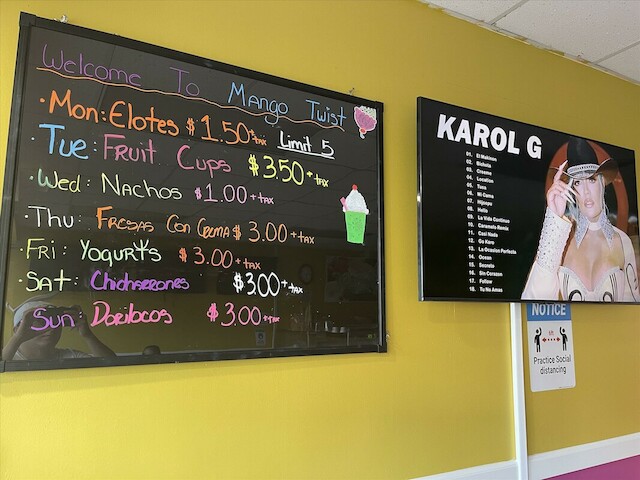 Welcome To Mango Twist
·Mon: Elotes $1.50+tax Limit 5
·Tue: Fruit Cups $3.50+tax
·Wed: Nachos $1.00+tax
·Thu: Fresas Con Crema $3.00+tax
·Fri: Yogurts $3.00+tax
·Sat: Chicharrones $3.00+tax
·Sun: Dorilocos $3.00+tax
KAROL G
01. El Makinon
02. Bichota
03. Creeme
04. Location
05. Tusa
06. Mi Cama
07. Hijoepu
08. Hello
09. La Vida Continuo
10. Caramelo Remix
11. Casi Nada
12. Go Karo
13. La Ocasion Perfecta
14. Ocean
15. Secreto
16. Sin Corazon
17. Follow
18. Tu No Amas
NOTICE
6ft
Practice Social
distancing